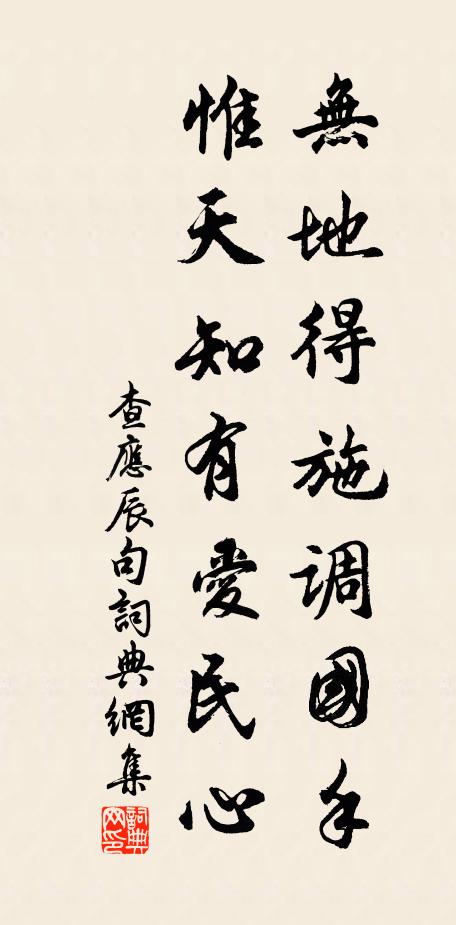 無地得施調國手
惟天知有愛民心
查應辰句詞典網集
詞典網印